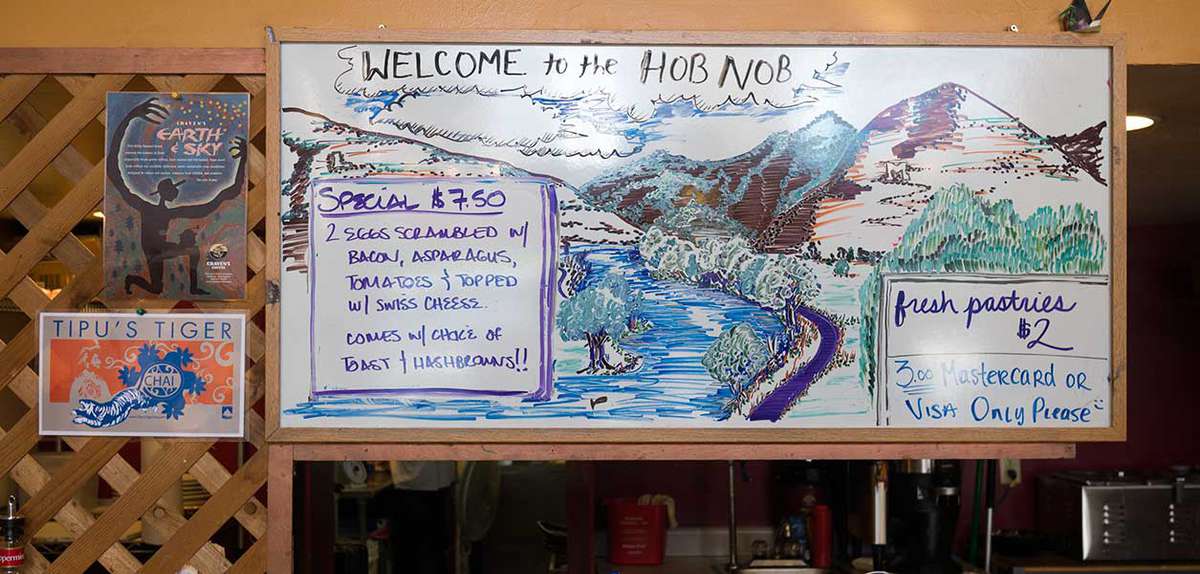 WELCOME to the HOB NOB
SPECIAL $7.50
2 EGGS SCRAMBLED W/
BACON, ASPARAGUS,
TOMATOES & TOPPED
W/ SWISS CHEESE.
COMES W/ CHOICE OF
TOAST & HASHBROWNS!!
fresh pastries
$2
3.00 Mastercard OR
VISA Only Please
CRAVEN'S
EARTH
& SKY
CRAVEN'S
TIPU'S TIGER
CHAI